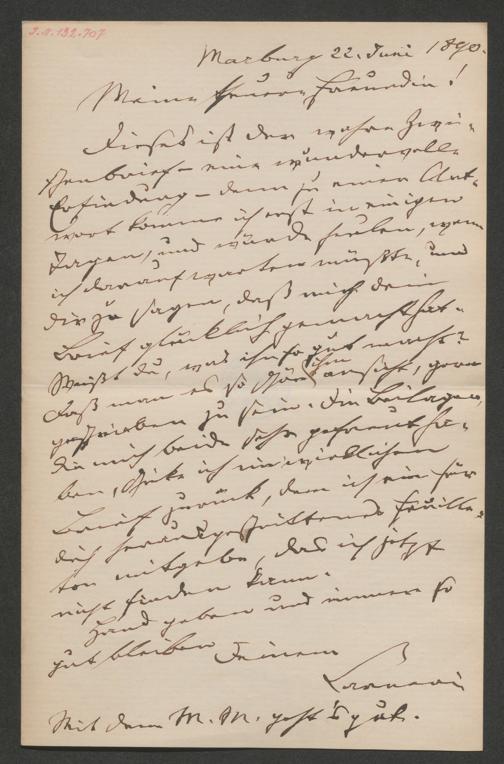 J.N. 132.707
Marburg 22. Juni 1890.
Meine theuere Freundin!
Dieses ist der wahre Zwi-
schenbrief – eine wundervolle
Erfindung – denn zu einer Ant-
wort komme ich erst in einigen
Tagen, und würde heulen, wenn
ich darauf warten müßte, um
dir zu sagen, daß mich dein
Brief glücklich gemacht hat.
Weißt du, was ihn so gut macht?
Daß man es so ihm ansieht, gern
geschrieben zu sein. Die Beilagen,
die mich beide sehr gefreut ha-
ben, schicke ich im wirklichen
Brief zurück, dem ich ein für
dich herausgeschnittenes Feuille-
ton mitgebe, das ich jetzt
nicht finden kann.
Hand geben und immer so
gut bleiben Deinem
Mit dem M. M. geht's gut.